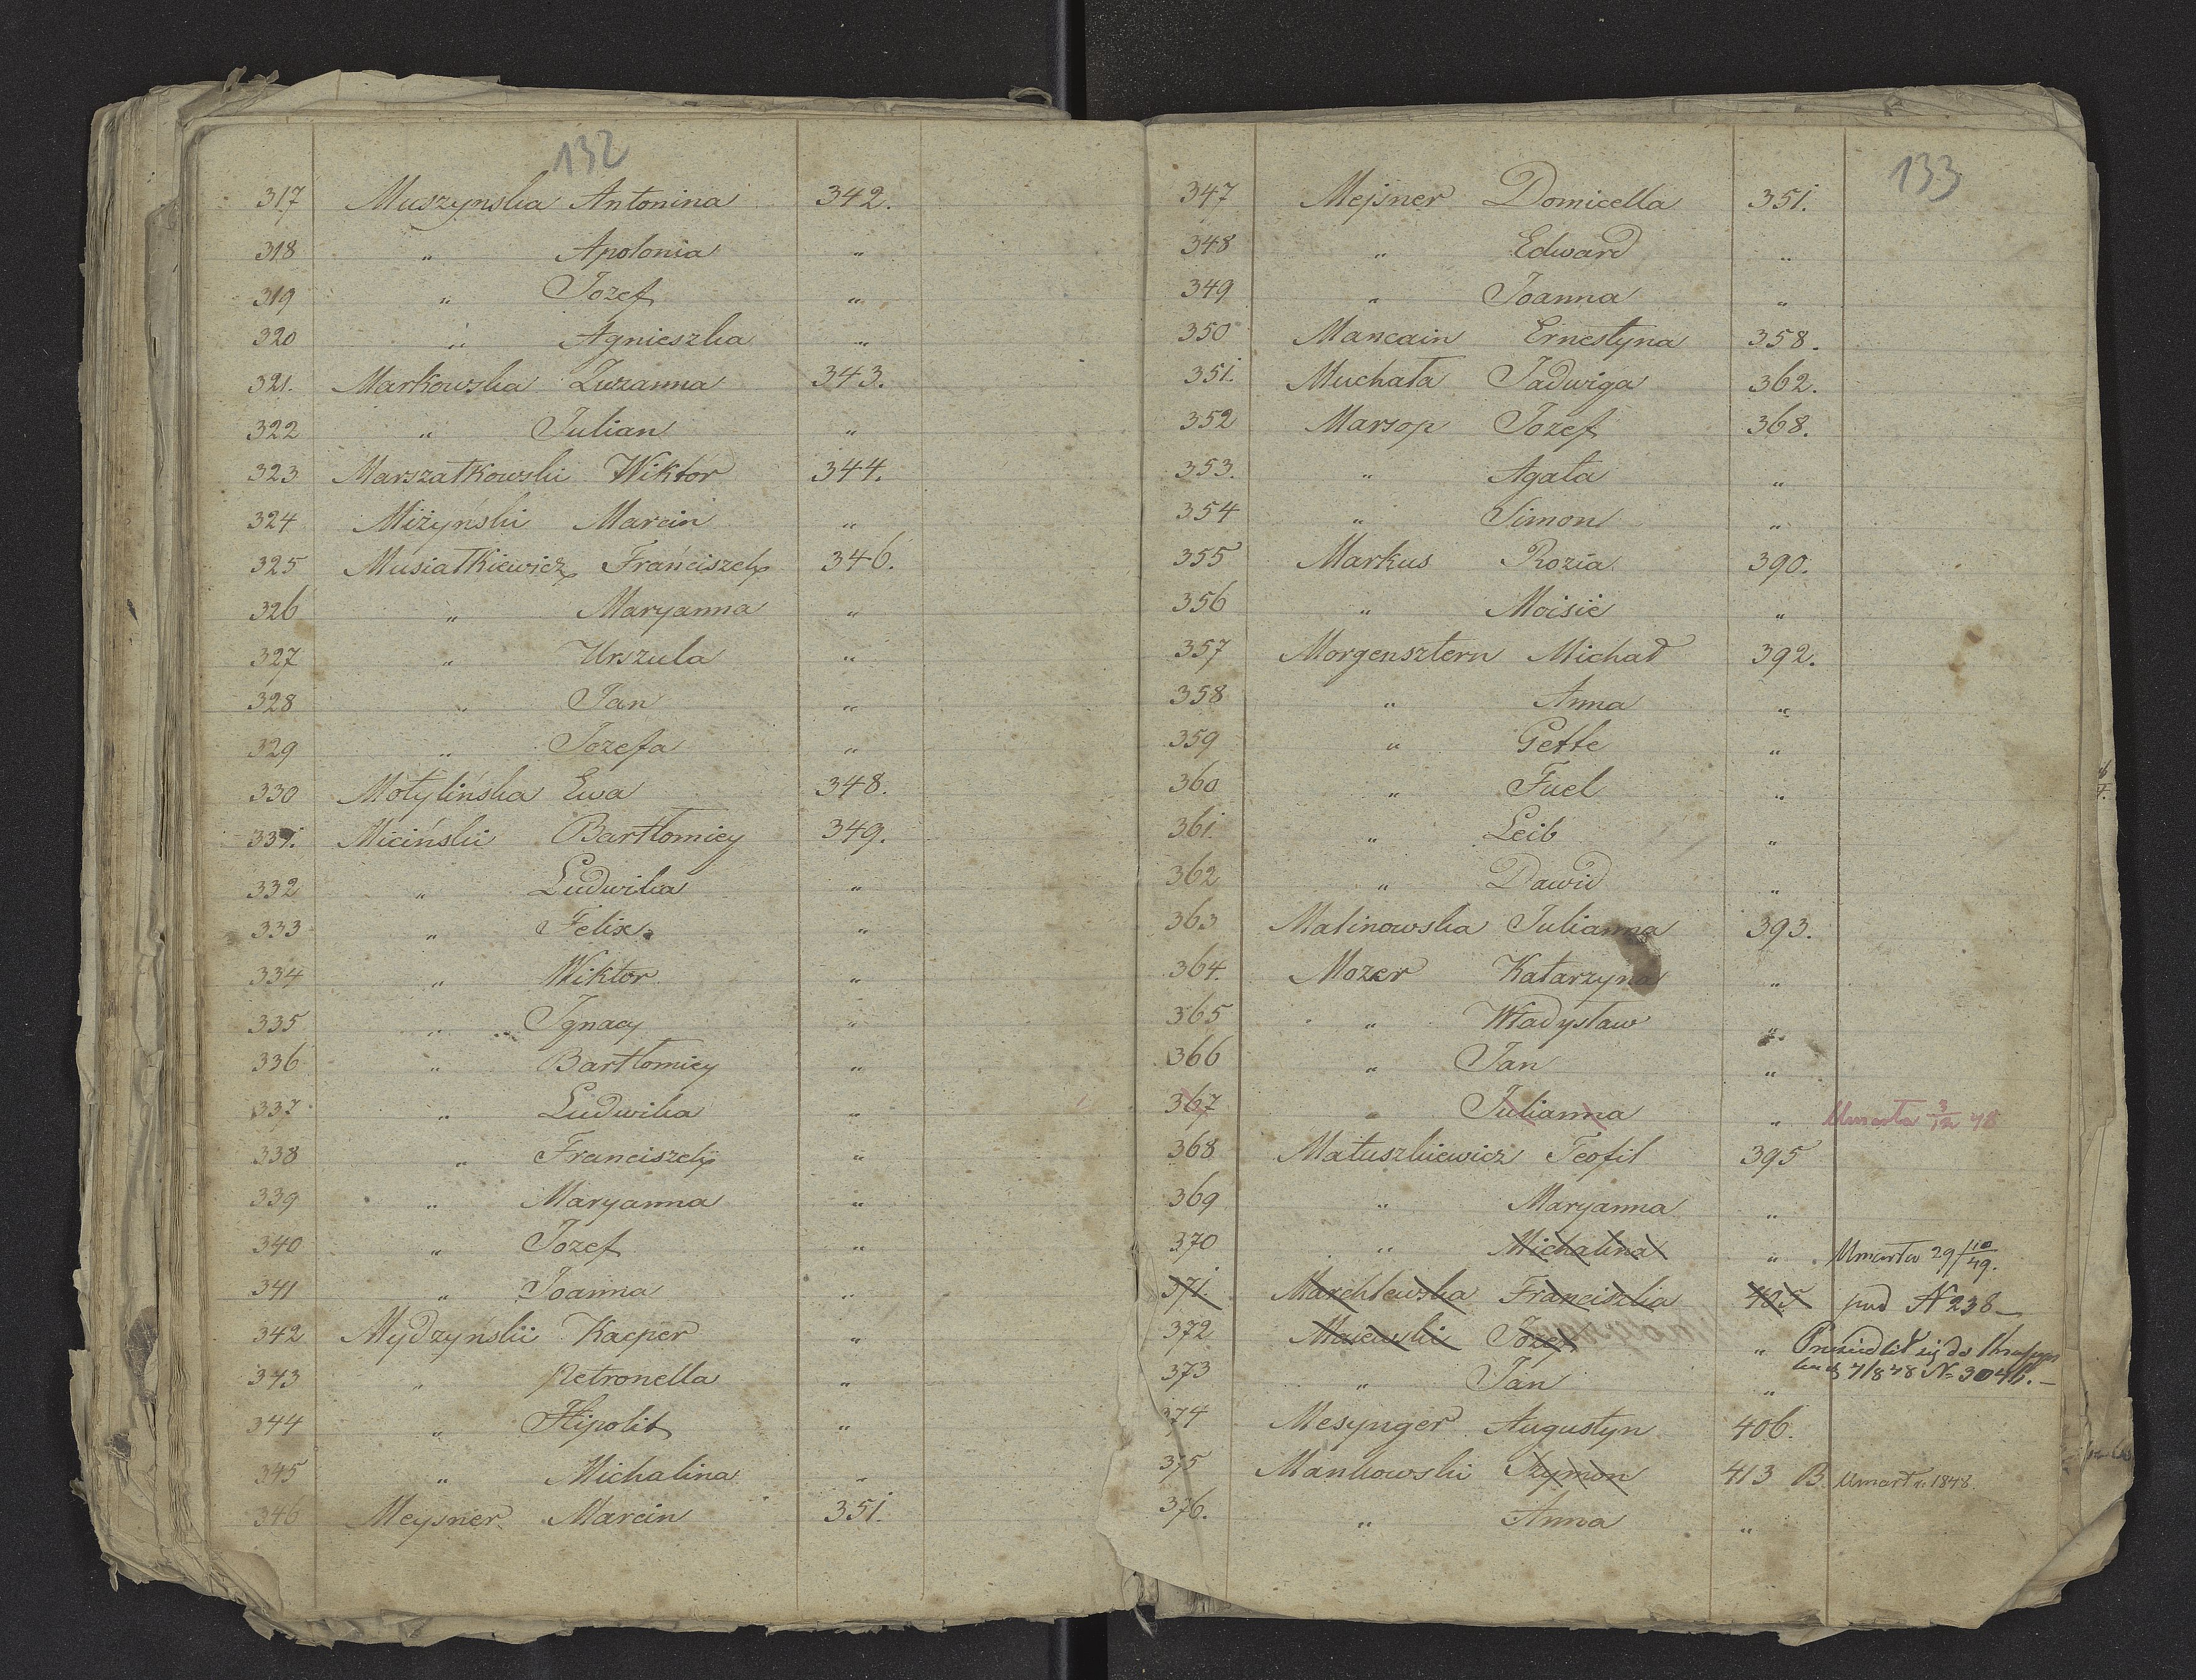 132
317 Muszynska Antonina 342.
318 " Apolonia "
319 " Jozef "
320 " Agnieszka "
321. Markowska Zuzanna 343.
322 " Julian "
323 Marszałkowski Wiktor 344.
324 Miżyński Marcin "
325 Musiałkiewicz Franciszek 346.
326 " Maryanna "
327 " Urszula "
328 " Jan "
329 " Jozefa "
330 Motylińska Ewa 348.
331. Miciński Bartłomiey 349.
332 " Ludwika "
333 " Felix "
334 " Wiktor "
335 " Ignacy "
336 " Bartłomiey "
337 " Ludwika "
338 " Franciszek "
339 " Maryanna "
340 " Jozef "
341 " Joanna "
342 Mydzyński Kacper "
343 " Petronella "
344 " Hipolit "
345 " Michalina "
346 Meysner Marcin 351.
133
347 Mejsner Domicella 351.
348 " Edward "
349 " Joanna "
350 Mancain Ernestyna 358.
351. Muchała Jadwiga 362.
352 Marsop Jozef 368.
353. " Agata "
354 " Simon "
355 Markus Rozia 390.
356 " Moisie "
357 Morgensztern Michał 392.
358 " Anna "
359 " Gette "
360 " Fuel "
361. " Leib "
362 " Dawid "
363 Malinowska Julianna 393.
364. Mozer Katarzyna "
365 " Władysław "
366 " Jan "
367 " Julianna " Umarła 3/12 48
368 Matuszkiewicz Teofil 395
369 " Maryanna "
370 " Michalina " Umarła 29/10 49.
371. Marchlewska Franciszka 405 pod N 238
372 Majewski Jozef " Przesiedlił się do
7/8 48 N 3046.
373 " Jan "
374 Mesynger Augustyn 406.
375 Mankowski Szymon 413 B. Umarł r. 1848.
376. " Anna "